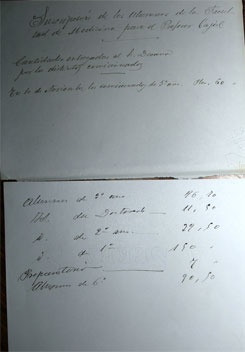 Suscripción de los Alumnos de la Facul
tad de Medicina para el Profesor Cajal
Cantidades entregadas al S. Decano
por las distintas comisiones
En 10 de Noviembre la comisión de 5º año Pts. 60 "
Alumnos de 3er año 46,50
Id. del Doctorado 11,50
Id. de 2º año 29,50
Id. de 1º 150 "
Preparatorio 7 "
Alumnos de 6º 90,50